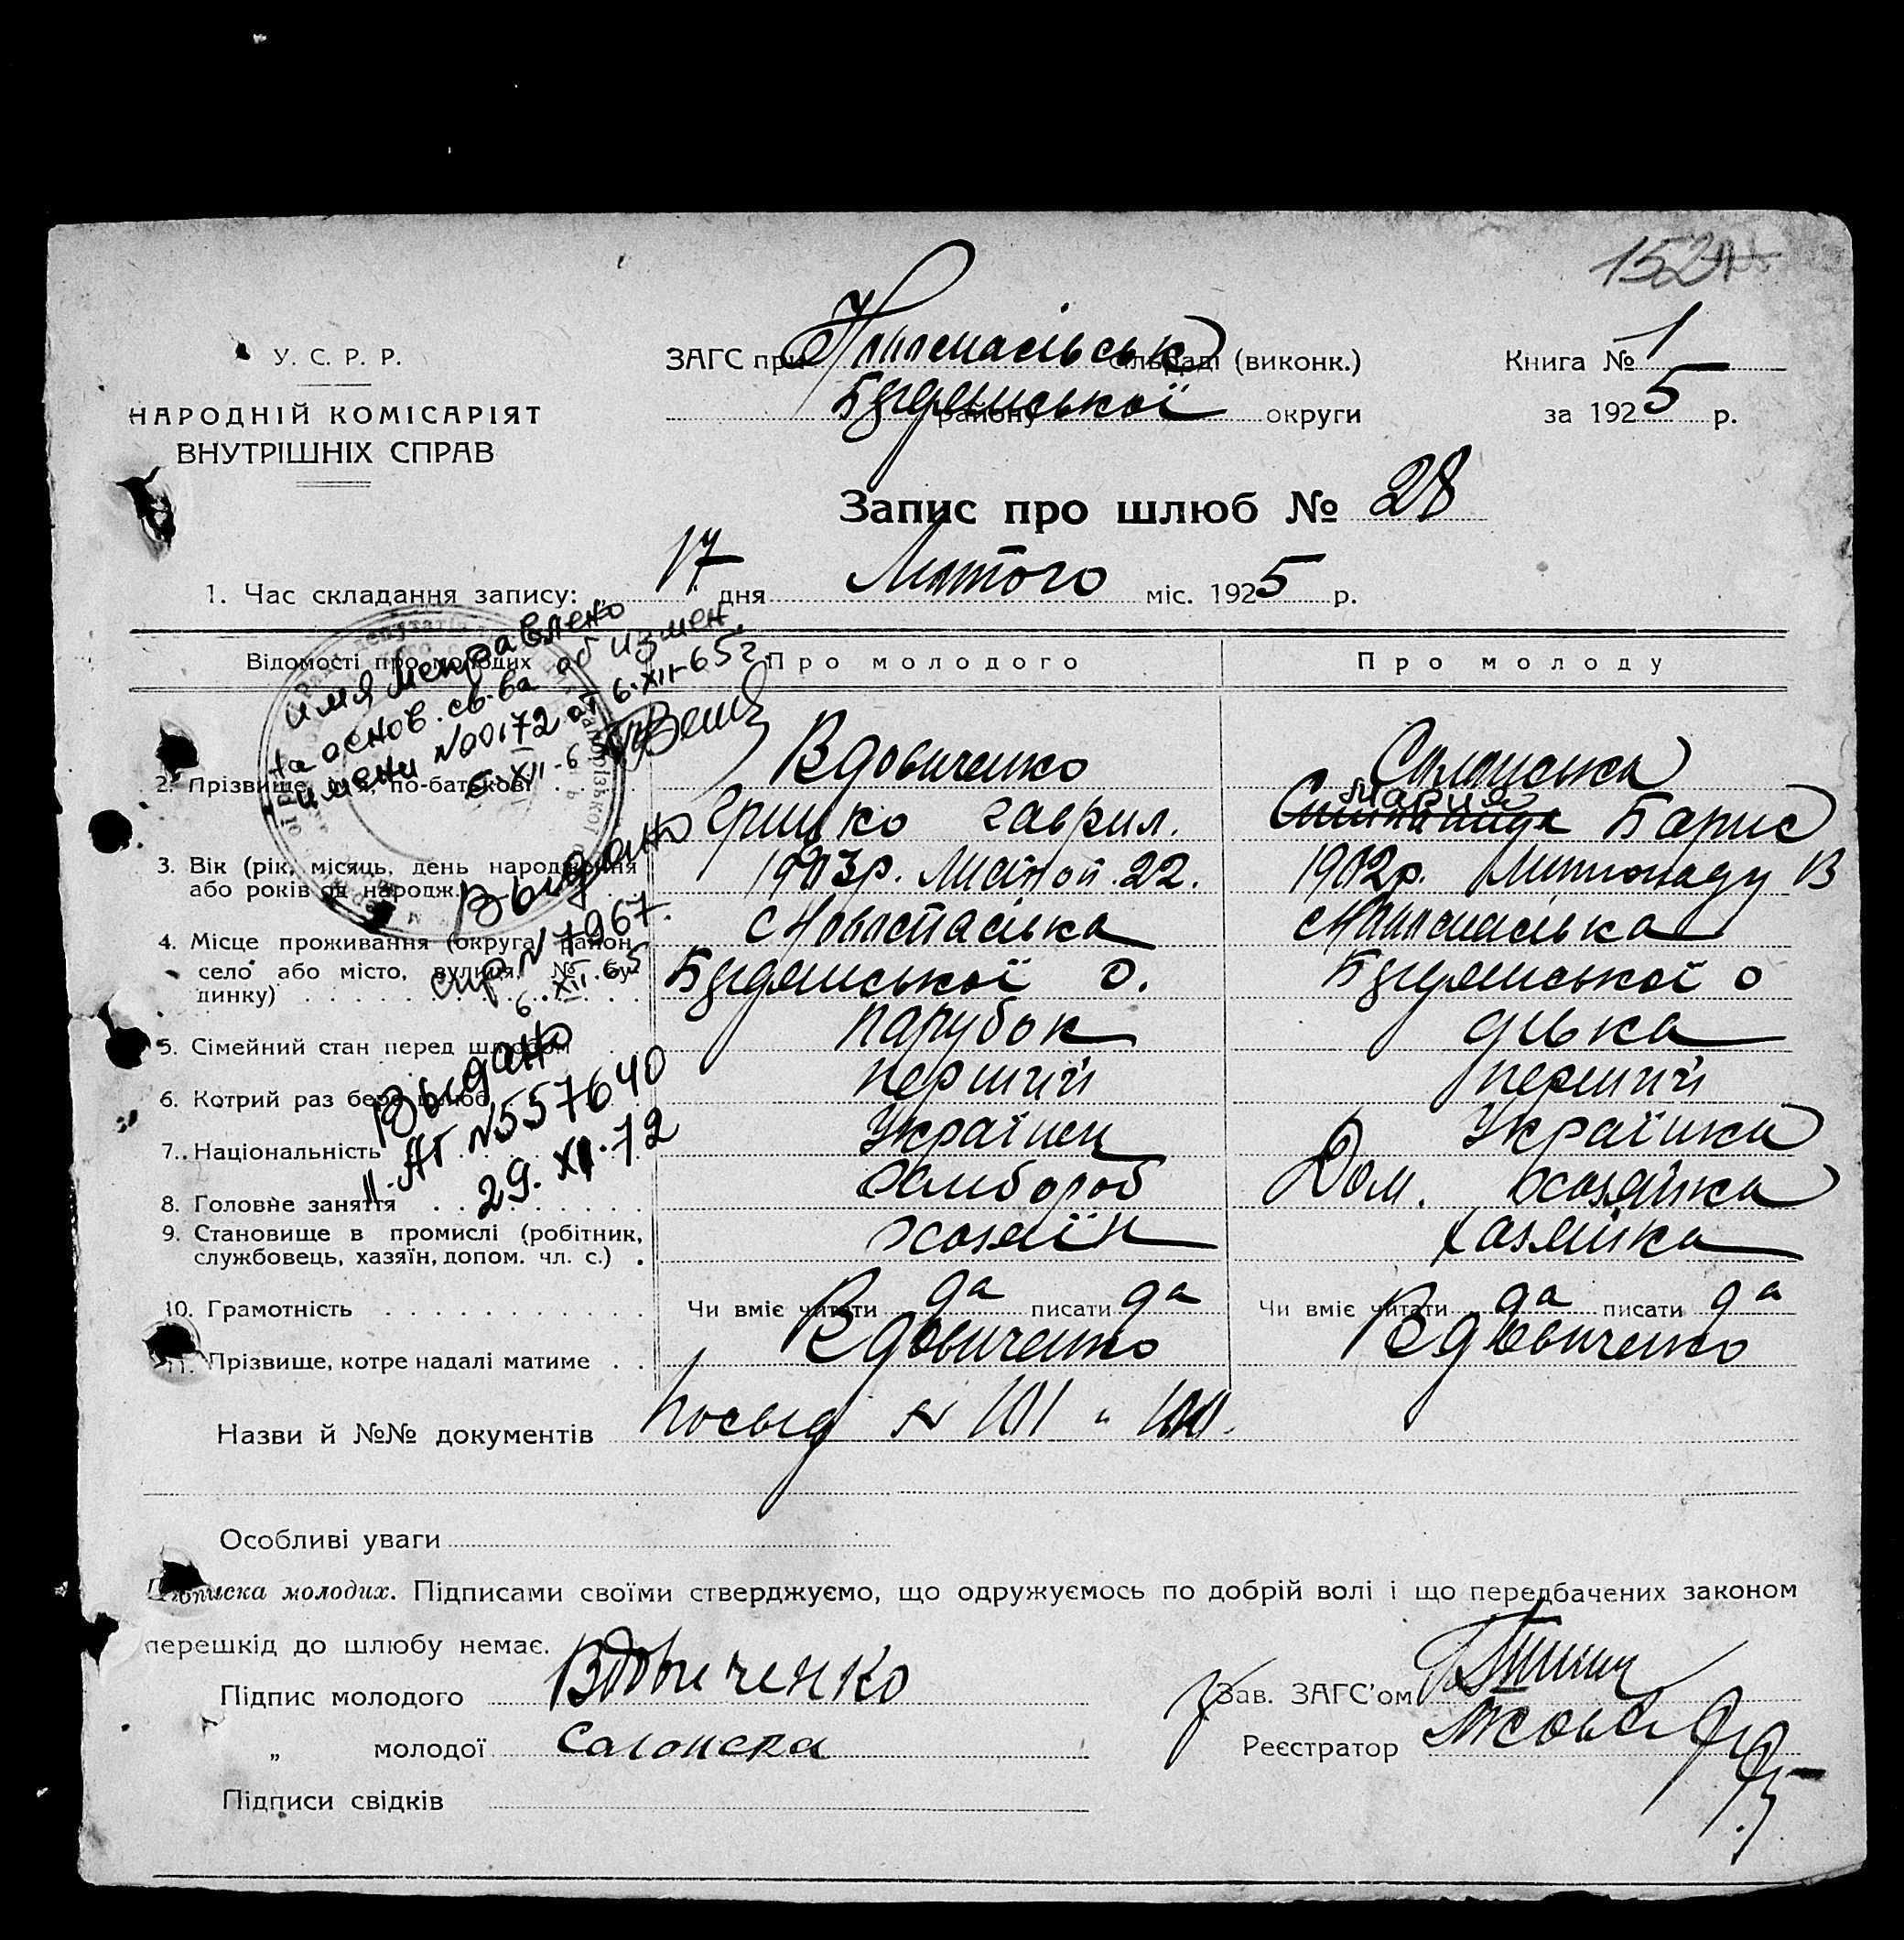 152
У. С. Р. Р.
НАРОДНІЙ КОМІСАРІЯТ
ВНУТРІШНІХ СПРАВ
ЗАГС при сільраді (виконк.)
району округи
Книга № 1
за 1925 р.
Запис про шлюб № 28
1. Час складання запису: 17 дня Лютого міс. 1925 р.
Відомості про молодих
Про молодого
Про молоду
имя исправлено
на основ. св-ва об измен.
имени №00172 от 6.XII-65г.
6-XII-6
2. Прізвище, ім'я, по-батькові
Вдовиченко
Гришко Гаврил.
Мария Барис
3. Вік (рік, місяць, день народження
або років од народж.)
1903р. 22.
1902р. Листопаду 13
4. Місце проживання (округа, район,
село або місто, вулиця, № бу-
динку)
с Новоспасівка
О.
с Новоспасівка
о
Выдано
спр N 7967.
6.XII.65
5. Сімейний стан перед шлюбом
парубок
дівка
6. Котрий раз бере шлюб
перший
перший
Выдано
II-АП №557640
29.XII.72
7. Національність
Українец
Українка
8. Головне заняття
Хлибороб
Дом. хозяйка
9. Становище в промислі (робітник,
службовець, хазяїн, допом. чл. с.)
Хозяїн
Хазяйка
10. Грамотність
Чи вміє читати да писати да
Чи вміє читати да писати да
11. Прізвище, котре надалі матиме
Вдовиченко
Вдовиченко
Назви й №№ документів Посвід № 101
Особливі уваги
Підписка молодих. Підписами своїми стверджуємо, що одружуємось по добрій волі і що передбачених законом
перешкід до шлюбу немає.
Підпис молодого Вдовиченко
„ молодої
Підписи свідків
Зав. ЗАГС'ом
Реєстратор